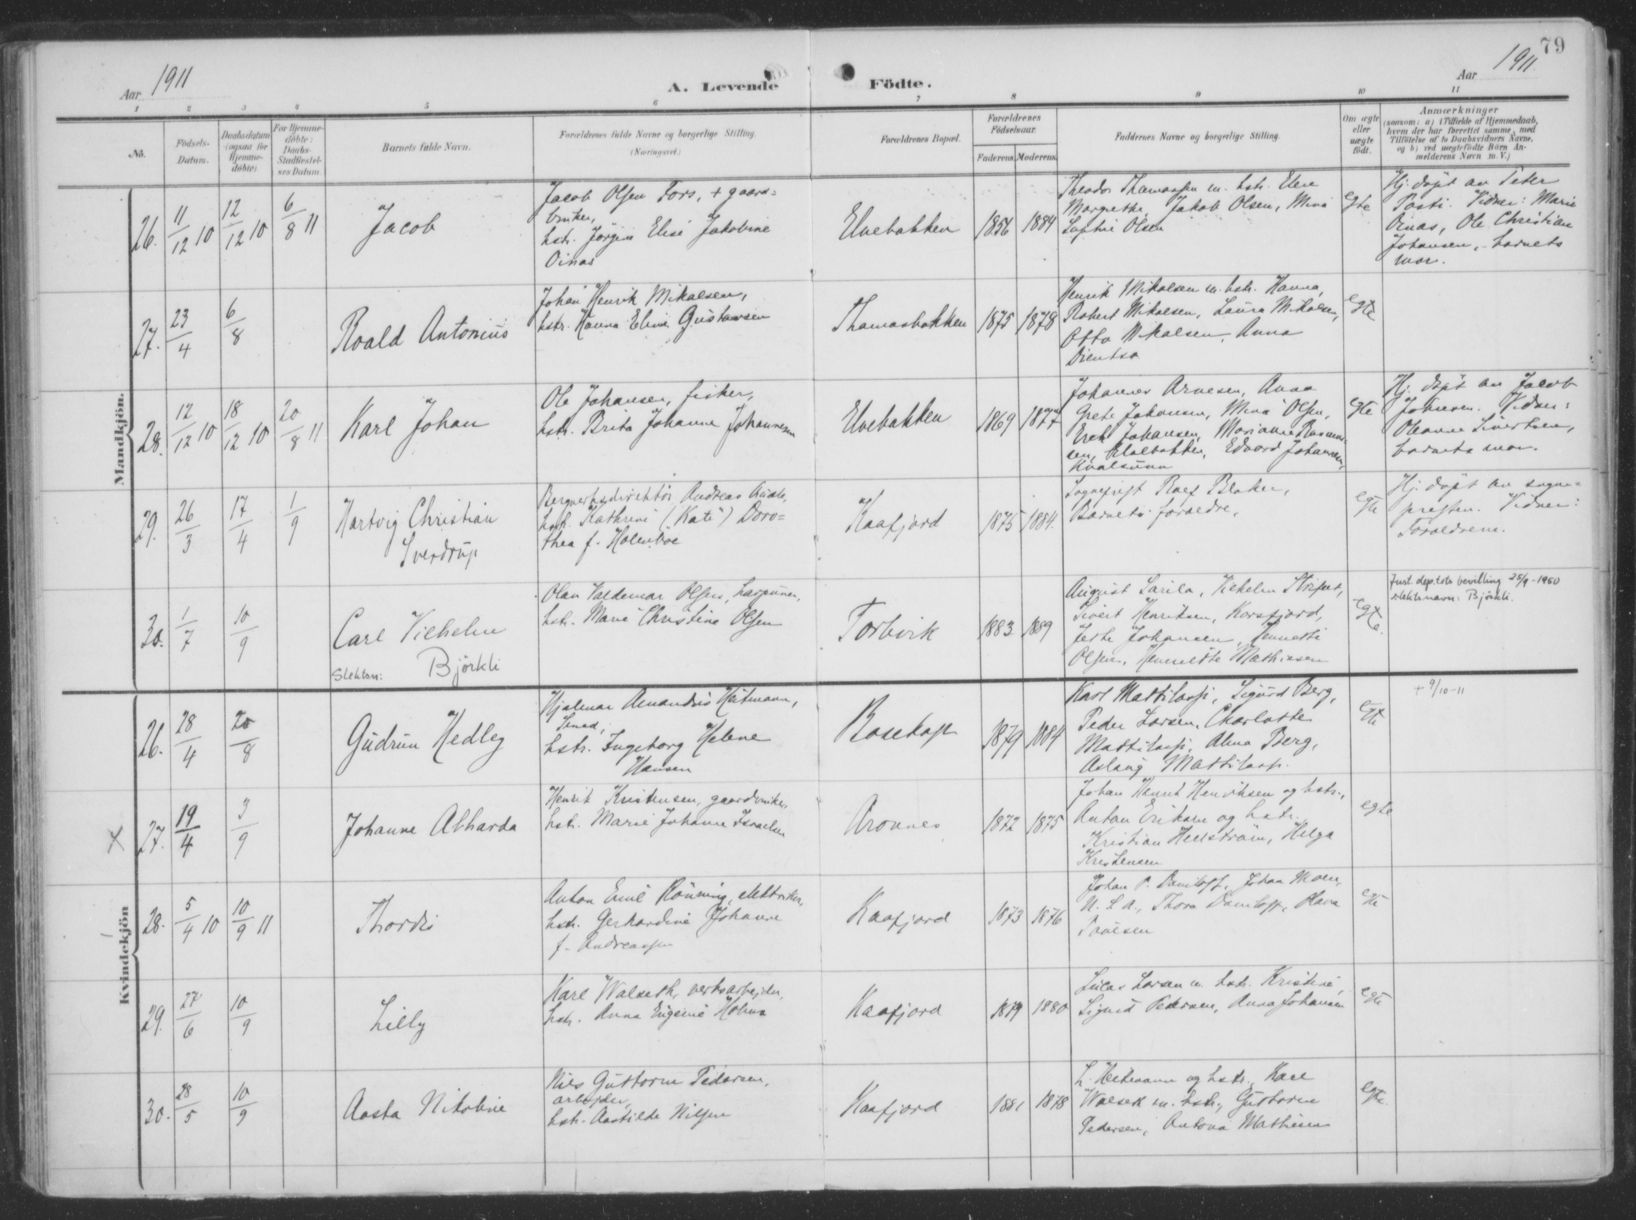 79
Aar 1911
A. Levende Födte.
Aar 1911
1 2 3 4 5 6 7 8 9 10 11
No.
Födsels-
Datum.
Daabsdatum
(ogsaa for
Hjemme-
döbte)
For Hjemme-
döbte:
Daabs-
Stadfæstel-
ses Datum.
Barnets fulde Navn.
Forældrenes fulde Navne og borgerlige Stilling.
(Næringsvei.)
Forældrenes Bopæl.
Forældrenes
Födselsaar.
Faderens. Moderens.
Faddernes Navne og borgerlige Stilling.
Om ægte
eller
uægte
födt.
Anmærkninger
(saasom: a) i Tilfælde af Hjemmedaab,
hvem der har forrettet samme, med
Tilföielse af to Daabsvidners Navne,
og b) ved uægtefödte Börn An-
melderens Navn m. V.)
Mandkjön.
26.
11/12 10
12/12 10
6/8 11
Jacob
Jacob Olsen Fors, + gaard=
bruker,
hstr. Jörgine Elise Jakobine
Oinas
Elvebakken
1856 1884
Theodor Thomassen m. hstr. Elen
Margrethe, Jakob Olsen, Mina
Sophie Olsen
egte
Hj. döpt av Peter
Posti. Vidner: Marie
Oinas, Ole Christian
Johansen, barnets
mor.
27.
23/4
6/8
Roald Antonius
Johan Henrik Mikalsen,
hstr. Hanna Eline Gustavsen
Thomasbakken
1875 1878
Henrik Mikalsen m. hstr. Hanna,
Robert Mikalsen, Laura Mikalsen,
Otto Mikalsen, Anna
egte
28.
12/12 10
18/12 10
20/8 11
Karl Johan
Ole Johansen, fisker,
hstr. Brita Johanne Johannesen
Elvebakken
1869 1877
Johannes Arnesen, Anna
Grete Johansen, Mina Olsen,
Erik Johansen, Marianne Rasmus=
sen, Elvebakken, Edvard Johansen,
Kvalsund
egte
Hj. döpt av Jacob
Johnsen. Vidner:
Oleanna Sivertsen,
barnets mor.
29.
26/3
17/4
1/9
Hartvig Christian
Sverdrup
Bergverksdirektör Andreas
hstr. Kathrine ("Kate") Doro=
thea f. Holenboe
Kaafjord
1875 1884.
Sogneprest Rolf Bloker,
Barnets foreldre.
egte
Hj. döpt av sogne=
presten. Vidner:
Foreldrene.
30.
1/7
10/9
Carl Vilhelm
Slektsn: Björkli
Olav Valdemar Olsen,
hstr. Marie Christine Olsen
Torbvik
1883 1889
August Sarila, Vilhelm Strifeldt,
Sivert Henriksen, Korsfjord,
Johansen, Jennette
Olsen, Mathiesen
egte.
Just. dep.tets bevilling 25/9-1950
slektsnavn: Björkli.
Kvindekjön
26.
28/4
20/8
Gudrun Hedley
Hjalmar Amandus Heitmann,
Smed,
hstr. Ingeborg Helene
Hansen
Bosekop
1879 1884
Karl Mattilassi, Sigurd Berg,
Peder Larsen, Charlotte
Mattilassi, Alma Berg,
Aslaug Mattilassi.
egte
+ 9/10-11
X
27.
19/4
3/9
Johanne Alharda
Henrik Kristensen, gaardbruker,
hstr. Marie Johanne Israelsen
Aronnes
1872 1875
Johan Henrik Henriksen og hstr.,
Anton Eriksen og hstr.
Kristian Hellström, Helga
Kristensen
egte
28.
5/4 10
10/9 11
Thordis
Anton Emil Rönning, elektriker,
hstr. Gerhardine Johanne
f. Andreassen
Kaafjord
1873 1876
Johan P. Damloff, Johan Moen,
U. S. A., Thora Damloff, Hava
egte
29.
27/6
10/9
Lilly
Karl Walseth, verksarbejder,
hstr. Anna Eugenie Holma
Kaafjord
1879 1880
Lucas Larsen m. hstr. Kristine,
Sigurd Pedersen, Anna Johansen
egte
30.
28/5
10/9
Aasta Nikoline
Nils Guttorm Pedersen,
arbejder,
hstr. Aastilde Nilsen
Kaafjord
1881 1878
L. Heitmann og hstr., Karl
Walsett m. hstr., Guttorm
Pedersen, Antona Mathisen
egte.